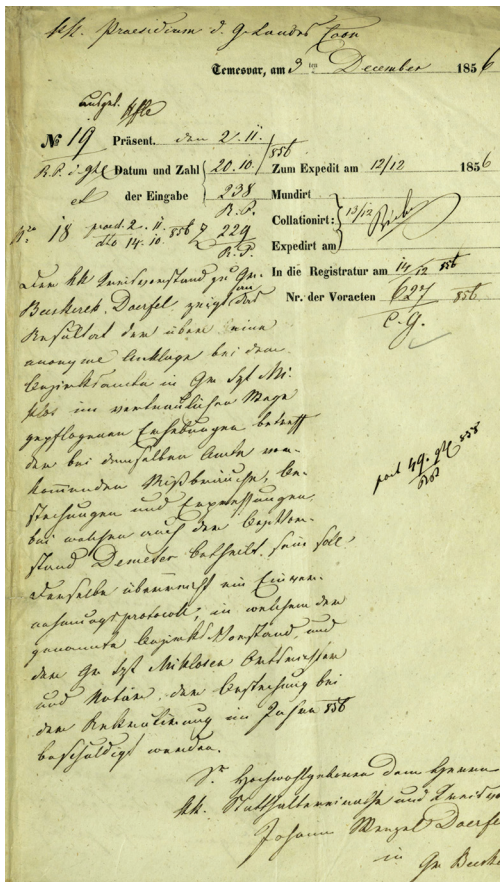 kk. Praesidium d. G. Landes Coon
Temesvar, am 9ten December 1856
ausgef.
Nº 19 Präsent. den 2/11. 856
R.P. d. gl. Datum und Zahl 20.10. Zum Expedit am 12/12 1856
et der Eingabe 238 Mundirt
R.P. Collationirt: 13/12
Nro 18 präs. 2. 11. 856 229 Expedirt am
dto 14. 10. R.P.
In die Registratur am 14/12 856
Nr. der Voracten 627 856
C. G.
Der kk Kreisvorstand zu Gr.
Becskerek, Doerfel, zeigt das
Resultat der über eine
anonyme Anklage bei dem
Bezirksamte in Gr Szt Mi-
klos im vertraulichen Wege
gepflogenen Erhebungen betreff
der bei demselben Amte vor-
kommenden Mißbräuche, Be-
stechungen und Erpressungen,
bei welchen auch der Bez. Vor-
stand Demeter betheilt sein soll
Derselbe überreicht ein Einver-
nehmungsprotocoll, in welchem der
genannte Bezirks Vorstand, und
der Gr Szt Mikloser Ortsrichter
und Notär, der Bestechung bei
der Rekrutirung im Jahre 856
beschuldigt werden.
port 49. gl 858
Sr Hochwohlgeboren dem Herrn
kk. Statthaltereirathe und
Johann Wenzel Doerfel
in Gr Becske